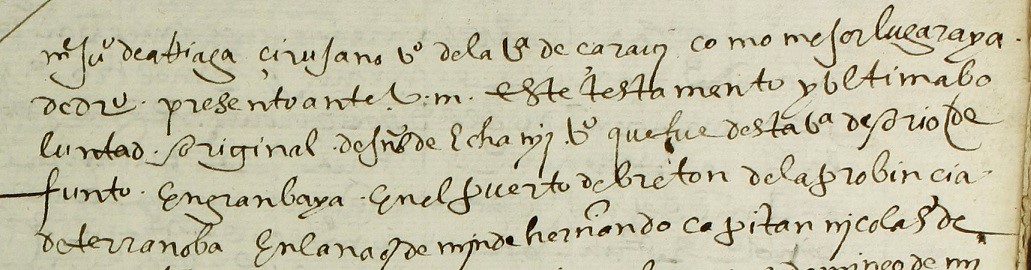 mᵉ Juº de attiaga çirujano vº de la vª de carauz como mejor lugar aya
de drº presento ante v. m. este testamento y vltima bo
luntad original de Juºs de Echaniz vº que fue desta vª de orio de
funto En granbaya En el puerto de breton de la probincia
de terranoba En la nao de mjn de hernando capitan njcolas de